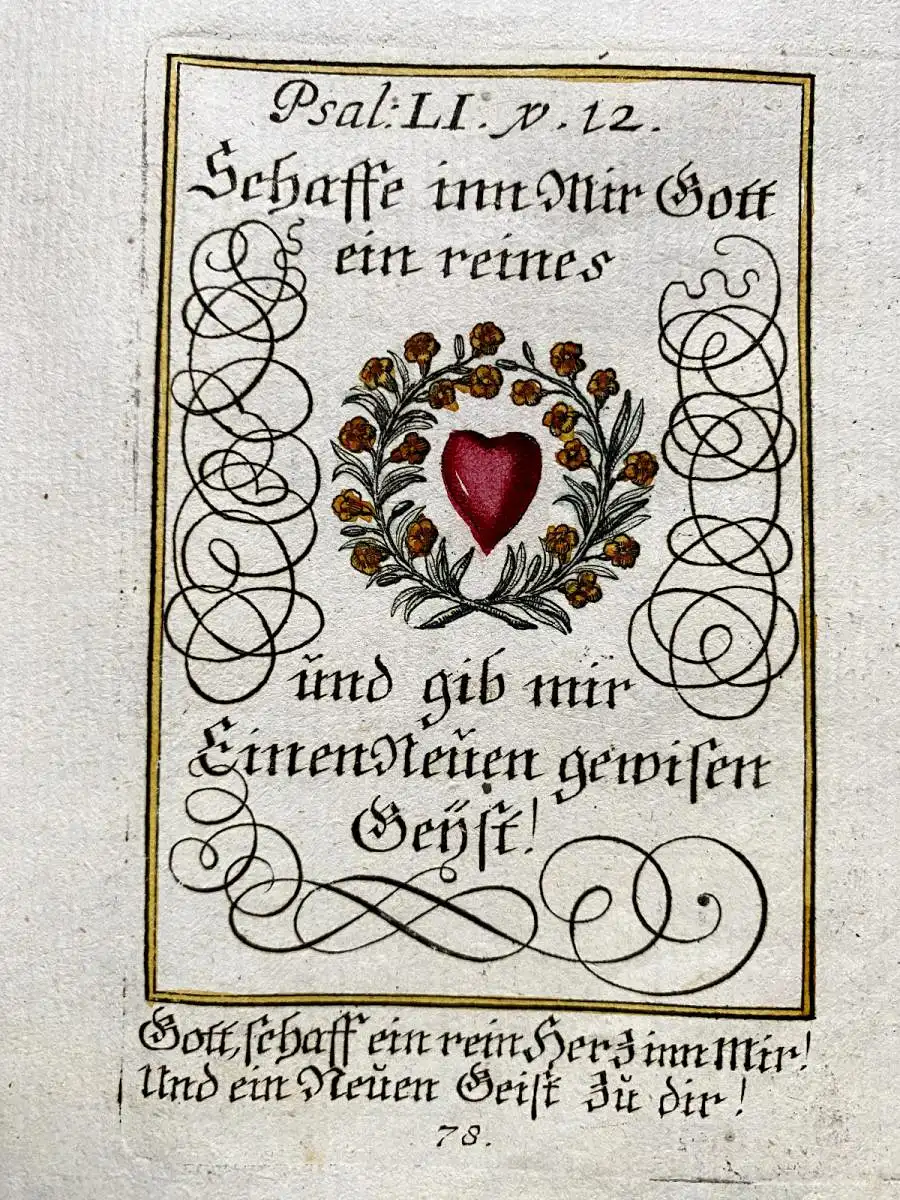 Psal: LI. v. 12.
Schaffe inn Mir Gott
ein reines
ŭnd gib mir
Einen Neŭen gewisen
Geÿst!
Gott, schaff ein rein Herz inn Mir!
Und ein Neŭen Geist Zŭ dir!
78.